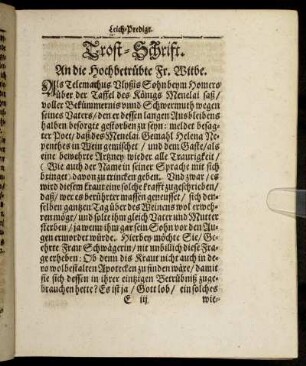 Leich-Predigt.
Trost-Schrift.
An die Hochbetrübte Fr. Witbe.
Als Telemachus Ulyssis Sohn beym Homero
über der Taffel des Königs Menelai saß/
voller Bekümmernis vund Schwermuth wegen
seines Vaters/ den er dessen langen Ausbleibens
halben besorgte gestorben zu seyn: meldet besag-
ter Poet/ daß des Menelai Gemahl Helena Ne-
penthes in Wein gemischet / und dem Gaste/als
eine bewehrte Artzney wieder alle Traurigkeit /
( Wie auch der Name in seiner Sprache mit sich
bringet) davon zu trincken geben. Und zwar / es
wird diesem kraut eine solche krafft zugeschrieben/
daß/ wer es berührter massen geneusset / sich der-
selben gantzen Tag über des Weinens wol erweh-
ren möge/ und solte ihm gleich Vater und Mutter
sterben/ ja wenn ihm gar sein Sohn vor den Au-
gen ermordet würde. Hierbey möchte Sie/ Ge-
ehrte Frau Schwägerin/ nit unbillich diese Fra-
ge erheben: Ob denn dis Kraut nicht auch in de-
ro wolbestalten Apotecken zu finden wäre/ damit
sie sich dessen in ihrer eintzigen Betrübniß zuge-
brauchen hette? Es ist ja / Gott lob/ ein solches
E iij
wie-